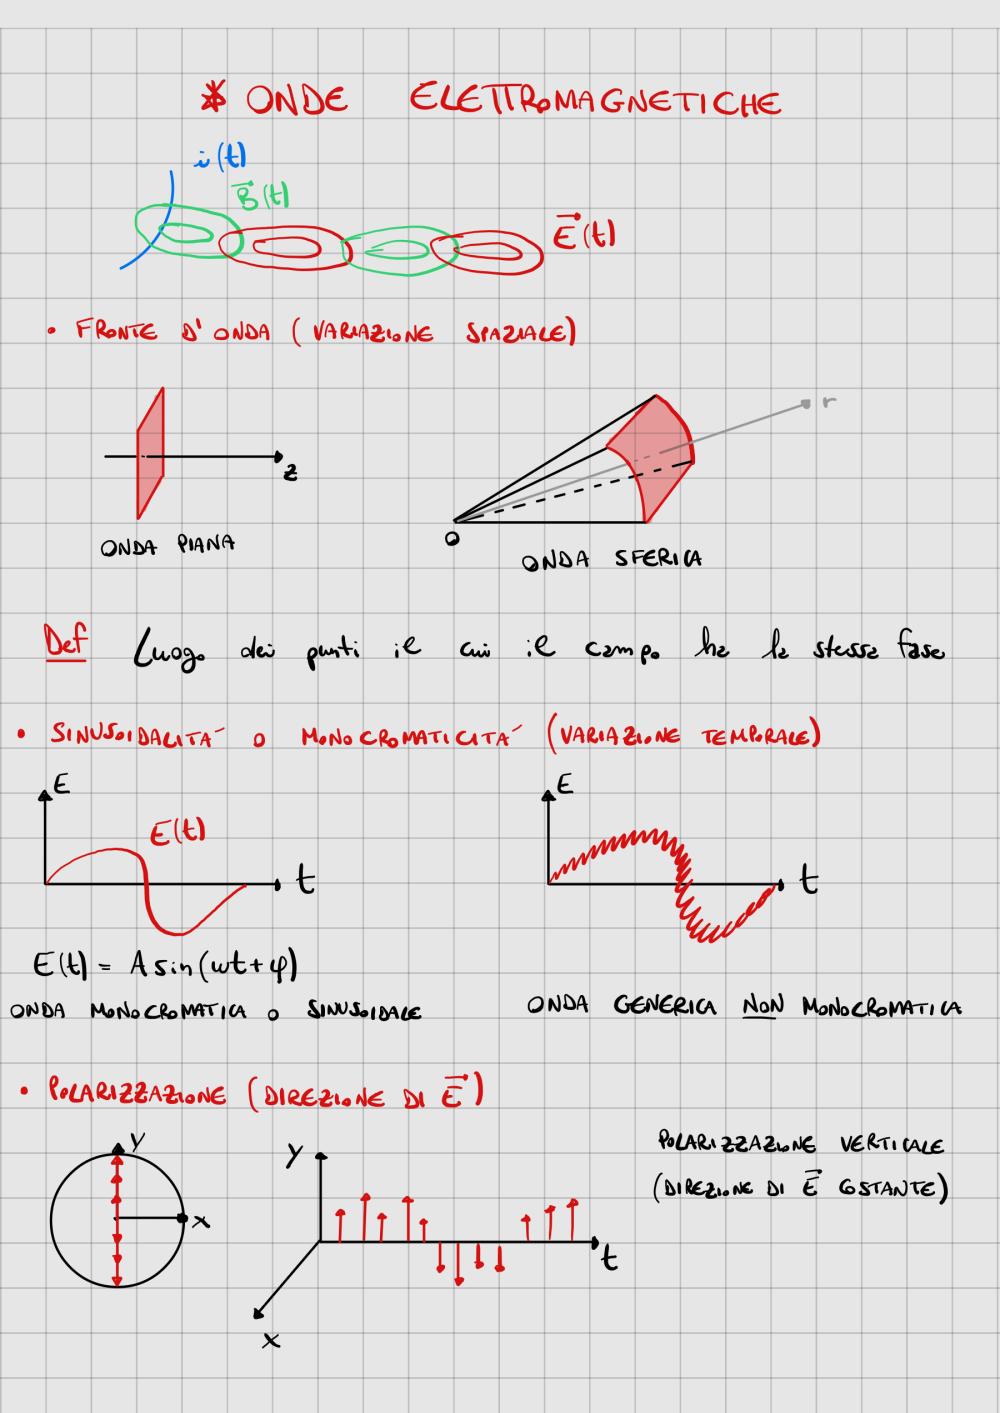 * ONDE ELETTROMAGNETICHE
i(t)
B⃗(t)
E⃗(t)
• FRONTE D'ONDA (VARIAZIONE SPAZIALE)
r
z
O
ONDA PIANA
ONDA SFERICA
Def Luogo dei punti il cui il campo ha la stessa fase
• SINUSOIDALITA´ O MONOCROMATICITA´ (VARIAZIONE TEMPORALE)
E
E
E(t)
t
t
E(t) = A sin(wt + φ)
ONDA MONOCROMATICA O SINUSOIDALE
ONDA GENERICA NON MONOCROMATICA
• POLARIZZAZIONE (DIREZIONE DI E⃗)
y
y
POLARIZZAZIONE VERTICALE
(DIREZIONE DI E⃗ COSTANTE)
x
t
x